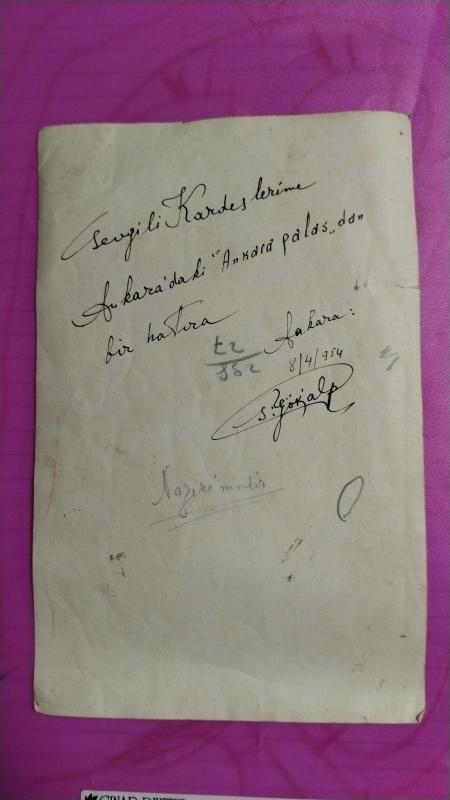 Sevgili Kardeşlerime
Ankara'daki "Ankara palas„ dan
bir hatıra
Ankara:
8/4/954
S. Gökalp
Nazire'nindir